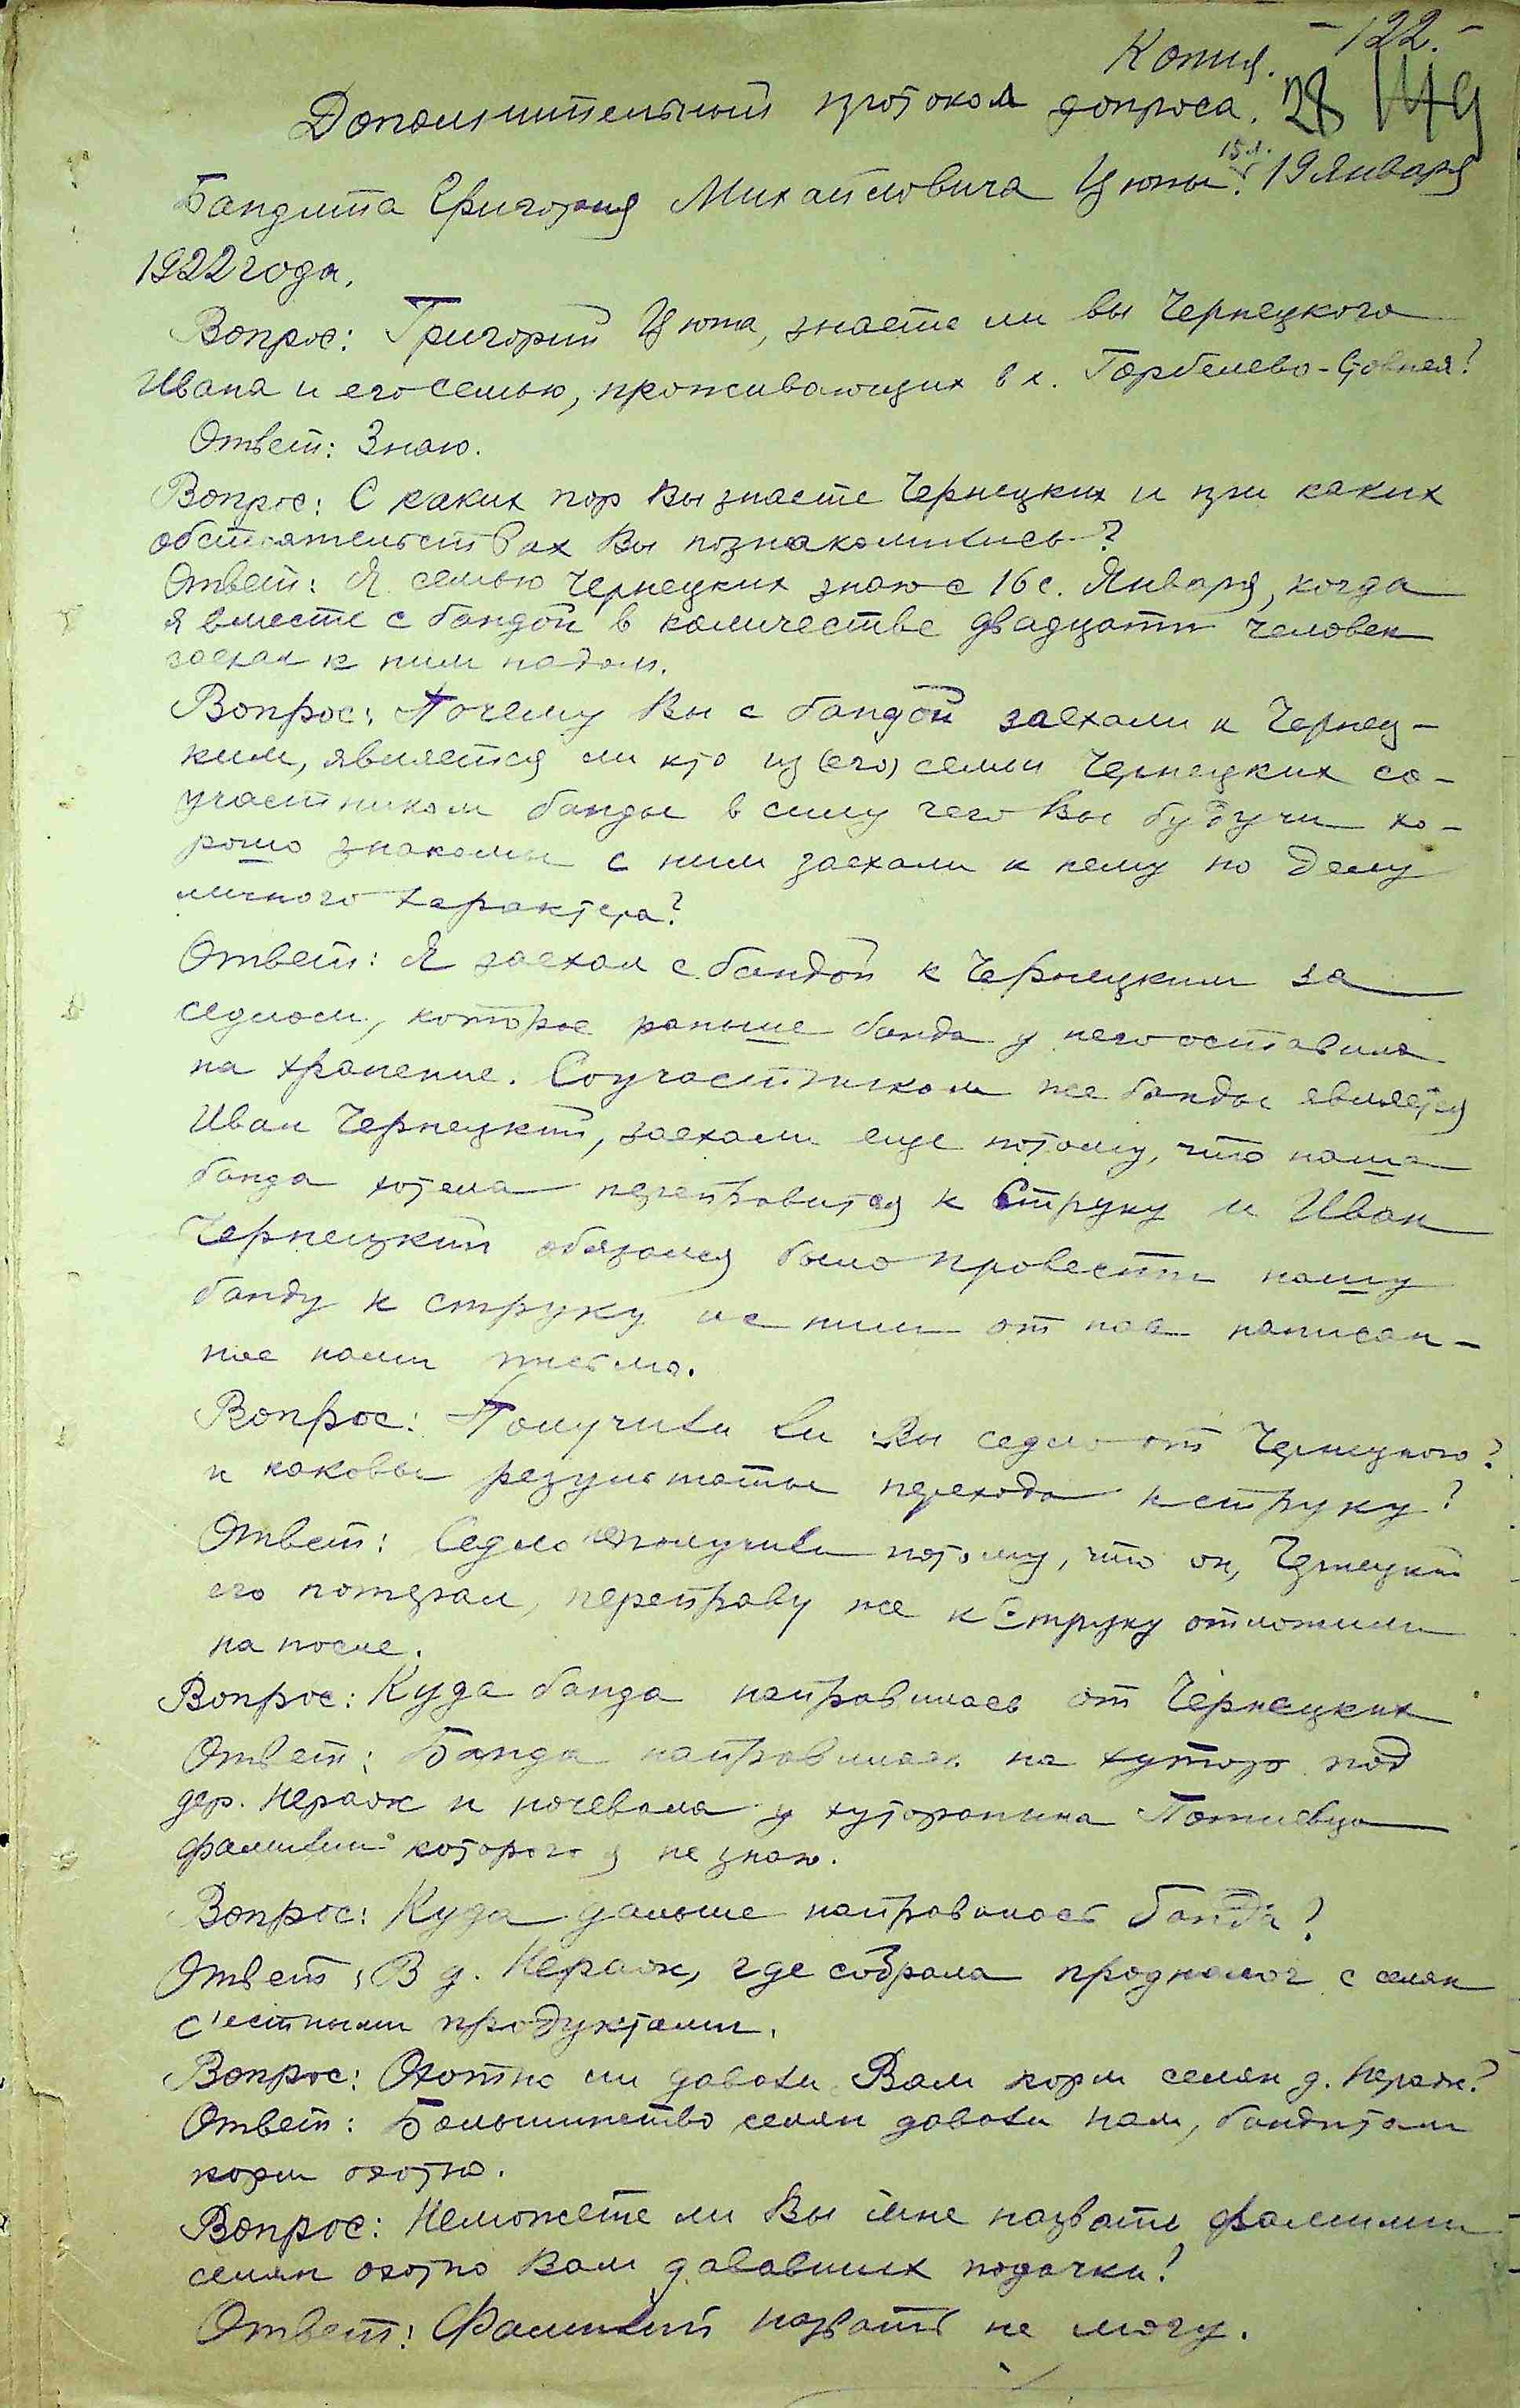 Копия. -122.-
Дополнительный протокол допроса. 28
15 л.
Бандита Григория Михайловича Цюпы. 19 Января
1922 года.
Вопрос: Григорий Цюпа, знаете ли вы Чернецкого
Ивана и его семью, проживающих в х. Горбелево-Стовпея?
Ответ: Знаю.
Вопрос: С каких пор Вы знаете Чернецких и при каких
обстоятельствах Вы познакомились?
Ответ: Я семью Чернецких знаю с 16 с. Января, когда
я вместе с бандой в количестве двадцати человек
заехал к ним на дом.
Вопрос: Почему Вы с бандой заехали к Чернец-
ким, является ли кто из (его) семьи Чернецких со-
участником банды в силу чего Вы будучи хо-
рошо знакомы с ним заехали к нему по делу
личного характера?
Ответ: Я заехал с бандой к Чернецким за
седлом, которое раньше банда у него оставила
на хранение. Соучастником же банды является
Иван Чернецкий, заехали еще потому, что наша
банда хотела переправится к Струку и Иван
Чернецкий обязался было провести нашу
банду к струку и с ним от нас написан-
ное нами письмо.
Вопрос: Получили ли Вы седло от Чернецкого?
и каковы результаты перехода к струку?
Ответ: Седло не получили потому, что он, Чернецкий
его потерял, переправу же к Струку отложили
на после.
Вопрос: Куда банда направилась от Чернецких
Ответ: Банда направилась на хутор под
дер. Нераж и ночевала у хуторянина
фамилии которого я не знаю.
Вопрос: Куда дальше направилась банда?
Ответ: В д. Нераж, где собрала продналог с селян
с'естными продуктами.
Вопрос: Охотно ли давали Вам корм селян д. Нераж?
Ответ: Большинство селян давали нам, бандитам
корм охотно.
Вопрос: Неможете ли Вы мне назвать фамилии
селян охотно Вам дававших подачки?
Ответ: Фамилий назвать не могу.